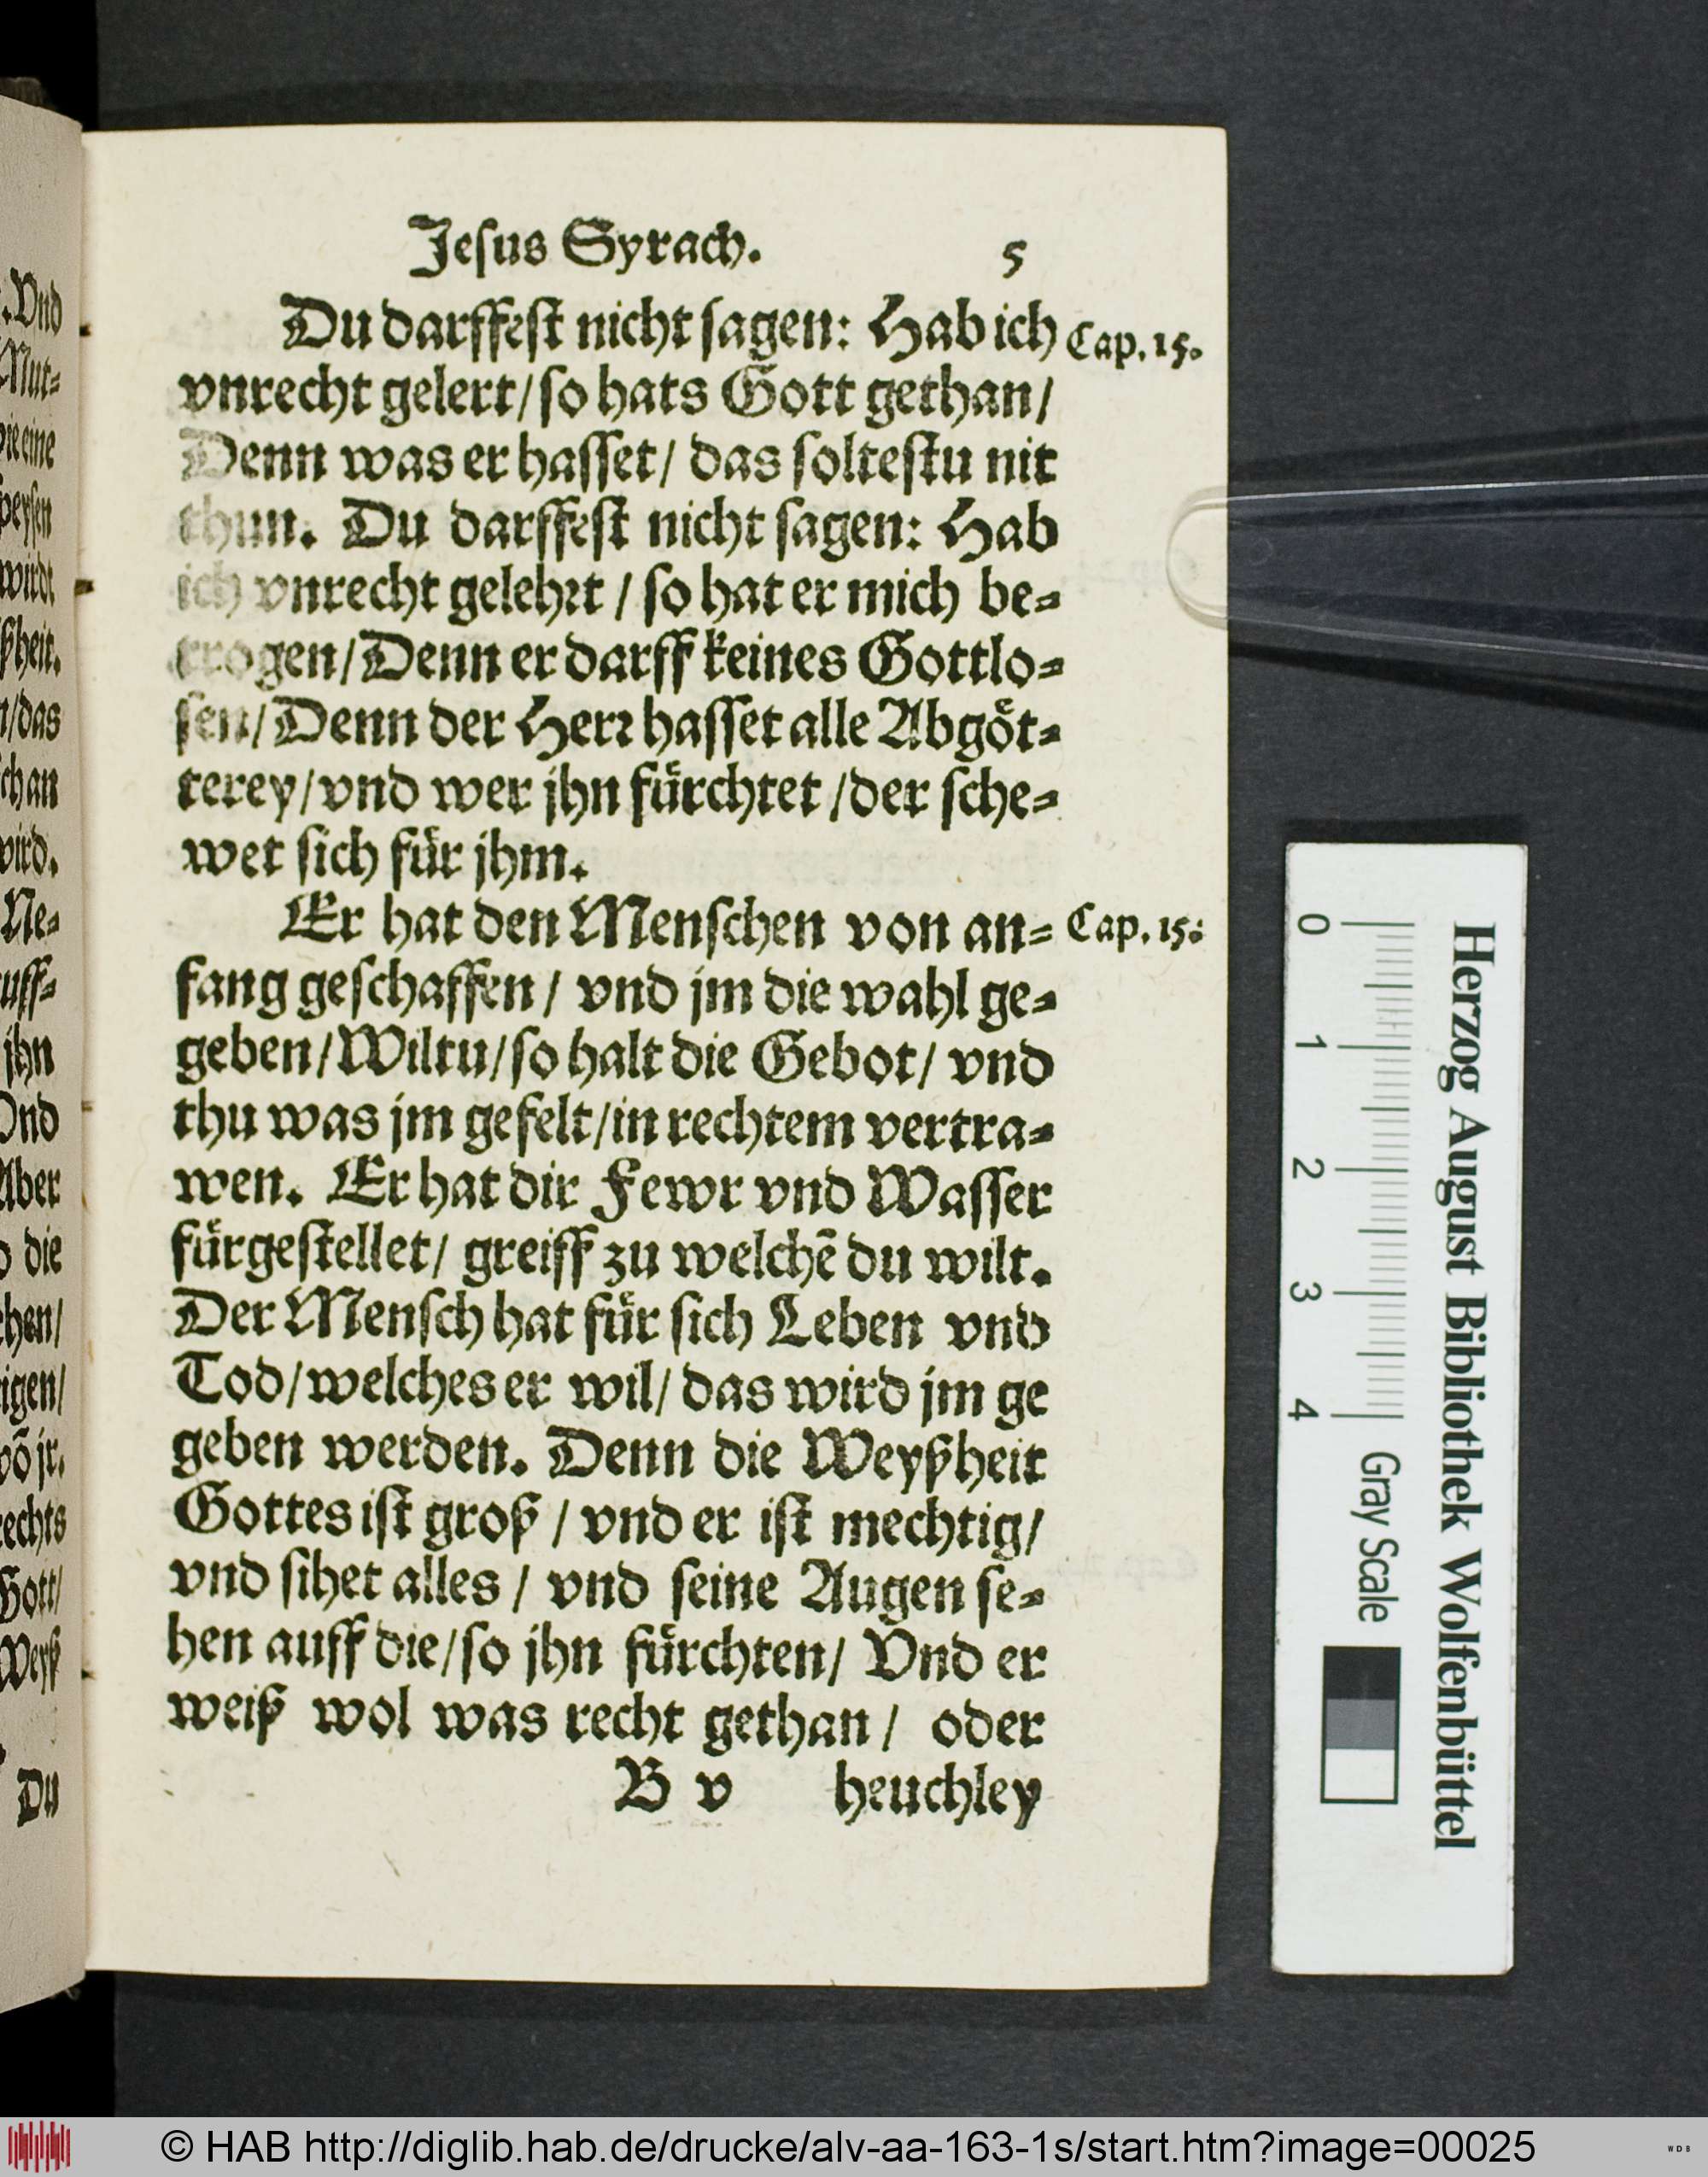 Jesus Syrach. 5
Du darffest nicht sagen: Hab ich Cap. 15.
vnrecht gelert/ so hats Gott gethan/
Denn was er hasset/ das soltestu nit
thun. Du darffest nicht sagen: Hab
ich vnrecht gelehꝛt / so hat er mich be⸗
trogen/ Denn er darff keines Gottlo⸗
sen/ Denn der Herꝛ hasset alle Abgoͤt⸗
terey/ vnd wer jhn fuͤrchtet / der sche⸗
wet sich fuͤr jhm.
Er hat den Menschen von an⸗ Cap. 15:
fang geschaffen / vnd jm die wahl ge⸗
geben/ Wiltu/ so halt die Gebot/ vnd
thu was jm gefelt/ in rechtem vertra⸗
wen. Er hat dir Fewr vnd Wasser
fuͤrgestellet/ greiff zu welchē du wilt.
Der Mensch hat fuͤr sich Leben vnd
Tod/ welches er wil/ das wird jm ge
geben werden. Denn die Weyßheit
Gottes ist groß / vnd er ist mechtig/
vnd sihet alles / vnd seine Augen se⸗
hen auff die/ so jhn fuͤrchten/ Vnd er
weiß wol was recht gethan / oder
B v heuchley
.Vnd
Mut⸗
die eine
speysen
wirdt
ßheit.
n/das
than
wird.
Ne⸗
uff⸗
jhn
Vnd
Aber
die
hen/
igen/
võ jr.
rechts
Gott/
Weyß
Du
Herzog August Bibliothek Wolfenbüttel
0 1 2 3 4 Gray Scale
© HAB http://diglib.hab.de/drucke/alv-aa-163-1s/start.htm?image=00025
WDB